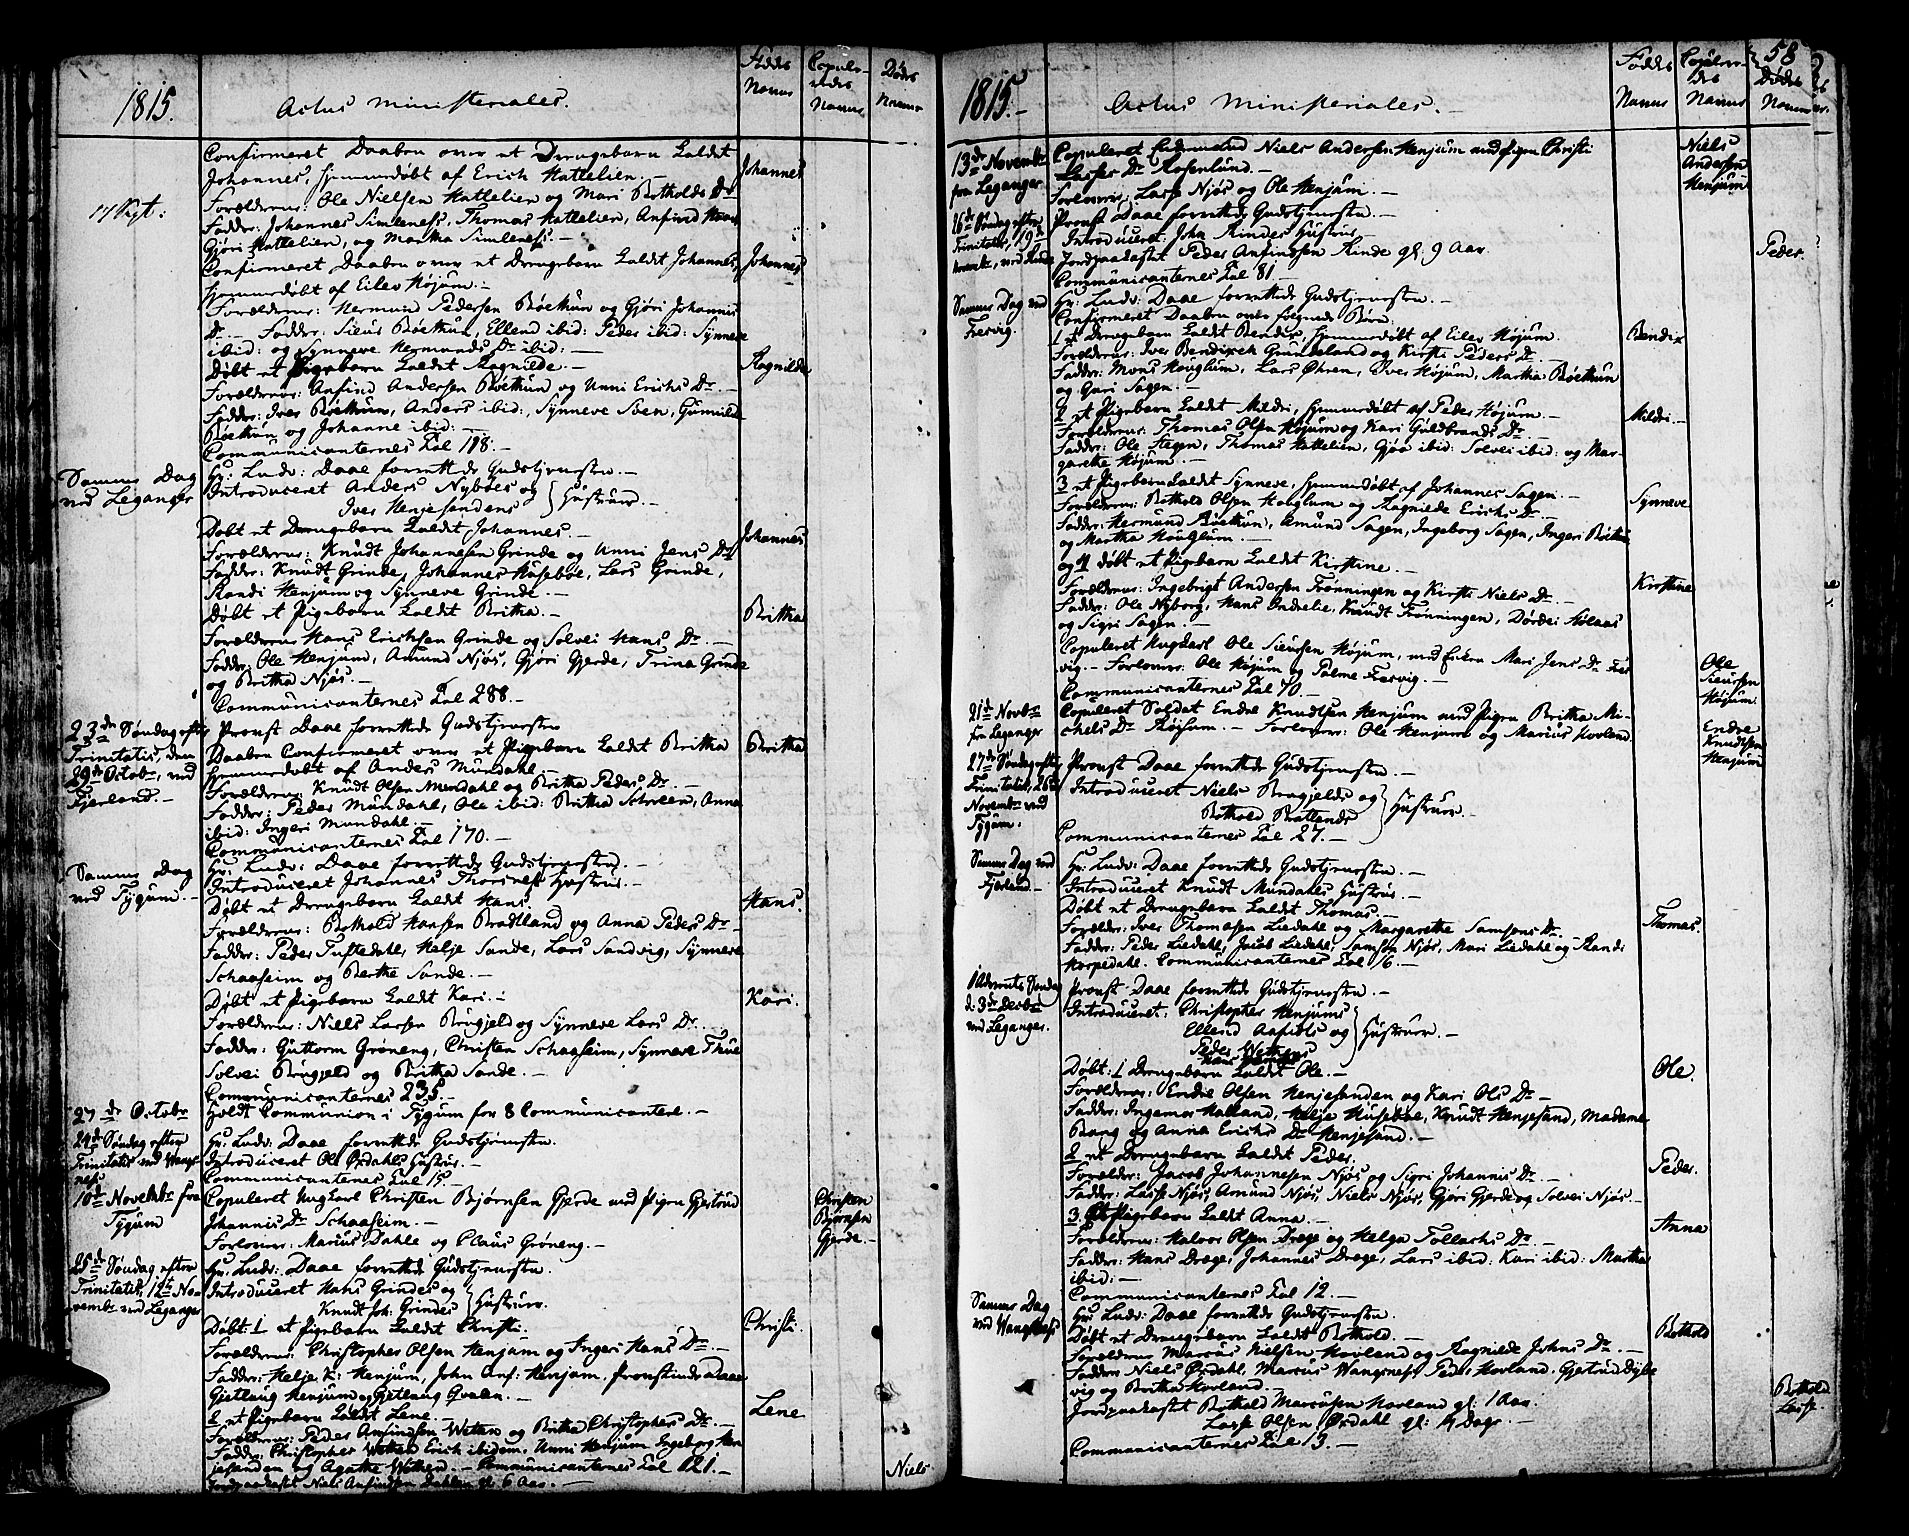 1815.
Actus ministeriales.
Fødde Navne
Copule-rede Navne
Døde Navne
Confirmeret Daaben over et Drengebarn kaldet
Johannes, hjemmedøbt af Erich Hattelien. -
Johannes
Forældrene: Ole Nielsen Hattelien og Mari Botholds Dr
17 Sept:
Fadder: Johannes Simlenes, Thomas Hattelien, Anfind
Gjøri Hattelien, og Martha Simlenes. -
Confirmeret Daaben over et Drengebarn kaldet Johannes,
Johannes
hjemmedøbt af Eilev Højum. -
Forældrene: Hermund Pedersen Bøethun og Gjøri Johannis
Dr - Fadder: Sieur Bøethun, Ellend ibid: Peder ibid: Synneve
ibid: og Synneve Hermunds Dr ibid: -
Døbt et Pigebarn kaldet Ragnilde. -
Ragnilde
Forældrene: Anfind Andersen Bøethun og Unni Erichs Dr -
Fadder: Iver Bøethun, Anders ibid:, Synneve Soen, Gunnilde
Bøethun og Johanne ibid: -
Communicanternes Tal 118. -
Samme Dag
ved Leganger
Hr: Ludv: Daae forrettede Gudstjenesten. -
Introduceret Anders Nybøes og
Iver Henjesandens } Hustruer. -
Døbt et Drengebarn kaldet Johannes. -
Johannes
Forældrene: Knudt Johannesen Grinde og Unni Jens Dr
Fadder: Knudt Grinde, Johannes Husebøe, Lars Grinde,
Randi Henjum og Synneve Grinde. -
Døbt et Pigebarn kaldet Britha. -
Britha
Forældrene Hans Erichsen Grinde og Solvei Hans Dr. -
Fadder: Ole Henjum, Amund Njøs, Gjøri Gjerde, Trina Grinde
og Britha Njøs. -
Communicanternes Tal 288. -
23de Søndag efter
Trinitatis, den
29de Octobr, ved
Fjerland. -
Provst Daae forrettede Gudstjenesten
Daaben Confirmeret over et Pigebarn kaldet Britha
Britha
hjemmedøbt af Anders Mundahl. -
Forældrene: Knudt Olsen Mundahl og Britha Peders Dr. -
Fadder: Peder Mundahl, Ole ibid: Britha Schreen, Anna
ibid: Ingeri Mundahl. -
Communicanternes Tal 170. -
Samme Dag
ved Tygum. -
Hr: Ludv: Daae forrettede Gudstjenesten. -
Introduceret Johannes Thorsnes Hustrue. -
Døbt et Drengebarn kaldet Hans.
Hans.
Forældrene: Bothold Hansen Bradtland og Anna Peders Dr -
Fadder: Peder Tuftedahl, Helje Sande, Lars Sandvig, Synneve
Schaasheim og Berthe Sande. -
Døbt et Pigebarn kaldet Kari. -
Kari.
Forældrene: Niels Larsen Brugjeld og Synneve Lars Dr. -
Fadder: Guttorm Grøneng, Christen Schaasheim, Synneve Thue
Solvei Brugjeld og Britha Sande. -
Communicanternes 235. -
27de Octobr
Holdt Communion i Tygum for 8 Communicantere. -
24de Søndag efter
Trinitatis ved Wangs-
nes.
Hr: Ludv: Daae forrettede Gudstjenesten.
Introduceret Ole Oxdahls Hustrue. -
Communicanternes Tal 15. -
10de Novembr fra
Tygum
Copuleret Ungkarl Christen Bjørnsen Gjerde med Pigen Gjertrud
Christen Bjørnsen Gjerde. -
Johannis Dr Schaasheim. -
Forlovere: Marius Dahle og Claus Grøneng. -
25de Søndag efter
Trinitatis, 12te No-
vembr ved Leganger
Hr: Ludv: Daae forrettede Gudstjenesten.
Introduceret Hans Grindes og
Knudt Joh: Grindes } Hustruer.
Døbt: 1 et Pigebarn kaldet Christi.
Christi.
Forældrene: Christopher Olsen Henjum og Ingeri Hans Dr. -
Fadder: Helje K: Henjum, John Anf: Henjum, Provstinde Daae
Gjetlaug Henjum og Gjetlaug Qvalen. -
2 et Pigebarn kaldet Lene.
Lene
Forældrene: Peder Anfindsen Wetten og Britha Christophers Dr. -
Fadder: Christopher Wetten Erich ibidem, Unni Henjum Ingeborg Hen-
jesanden og Agathe Wetten. - Communicanternes Tal 121. -
Jordpaakastet Niels Anfindsen Dahlen gl: 6 Aar. -
Niels
58
1815. -
Actus ministeriales. -
Fødde Navne
Copulere-de Navne
Døde Navne
13de Novembr
fra Leganger.
Copuleret Enkemand Niels Andersen Henjum med Pigen Christi
Niels Andersen Henjum
Lasses Dr Rosenlund. -
Forlovere, Lasse Njøs og Ole Henjum. -
26de Søndag efter
Trinitatis, 19de
Novembr, ved Rinde
Provst Daae forrettede Gudstjenesten. -
Introduceret: John Rindes Hustrue. -
Jordpaakastet Peder Anfindsen Rinde gl: 9 Aar.
Peder.
Communicanternes Tal 81. -
Samme Dag ved
Fresvig. -
Hr: Ludv: Daae forrettede Gudstjenesten. -
Confirmeret Daaben over følgende Børn:
1 et Drengebarn kaldet Bendix, hjemmedøbt af Eilev Højum.
Bendix
Forældrene: Iver Bendixen Grundeland og Kirsti Peders Dr. -
Fadder: Mons Houglum, Lars Øhren, Iver Højum, Martha Bøethun
og Guri Sagen. -
2 et Pigebarn kaldet Mildri, hjemmedøbt af Peder Højum. -
Mildri. -
Forældrene: Thomas Olsen Højum og Kari Guldbrands Dr -
Fadder: Ole Stegen, Thomas Hattelien, Gjøa ibid: Solvei ibid: og Mar-
garethe Højum. -
3 et Pigebarn kaldet Synneve, hjemmedøbt af Johannes Sagen. -
Synneve
Forældrene: Bothold Olsen Houglum og Ragnilde Erichs Dr. -
Fadder: Hermund Bøethun, Amund Sagen, Ingeborg Sagen, Ingeri Bøethun
og Martha Houglum. -
og 4 døbt et Pigebarn kaldet Kirstine. -
Kirstine
Forældrene: Ingebrigt Andersen Frønningen og Kirsti Niels Dr. -
Fadder: Ole Nyborg, Hans Indrelie, Knudt Frønningen, Dordei Holaas
og Sigri Sagen. -
Copuleret Ungkarl Ole Sieursen Højum, med Enken Mari Jens Dr Fres-
Ole Sieursen Højum.
vig. - Forlovere: Ole Højum og Palme Fresvig. -
Communicanternes Tal 70. -
21de Novbr
fra Leganger
Copuleret Soldat Endre Knudtsen Henjum med Pigen Britha Mi-
Endre Knudtsen Henjum
chels Dr Højum. - Forlovere: Ole Henjum og Marius Hovland.
27de Søndag efter
Trinitatis, 26de
Novembr ved
Tygum.
Provst Daae forrettede Gudstjenesten. -
Introduceret Niels Brugjelds og
Bothold Bratlands } Hustruer. -
Communicanternes Tal 27. -
Samme Dag ved
Fjerland. -
Hr: Ludv: Daae forrettede Gudstjenesten. -
Introduceret Knudt Mundahls Hustrue. -
Døbt et Drengebarn kaldet Thomas. -
Thomas.
Forældre: Iver Thomesen Liedahl og Margarethe Samsons Dr. -
Fadder: Peder Liedahl, Jacob Liedahl, Samson Njøs, Mari Liedahl og Randi
Horpedahl. Communicanternes Tal 16. -
1 Advents Søndag
d: 3de Decbr
ved Leganger.
Provst Daae forrettede Gudstjenesten. -
Introduceret: Christopher Henjums
Ellend Aafedts og
Peder Wettens } Hustruer. -
Døbt: 1 Drengebarn kaldet Ole. -
Ole.
Forældrene: Endre Olsen Henjesanden og Kari Ols Dr -
Fadder: Ingemor Halland, Helje Husebøe, Knudt Henjesand, Madame
Bang og Anna Erichs Dr Henjesand. -
2 et Drengebarn kaldet Peder.
Peder.
Forældre: Jacob Johannesen Njøs og Sigri Johannis Dr. -
Fadder: Lasse Njøs, Amund Njøs, Niels Njøs, Gjøri Gjerde og Solvei Njøs. -
3 et Pigebarn kaldet Anna. -
Anna
Forældrene: Halvor Olsen Drege og Helga Tollachs Dr. -
Fadder: Hans Drege, Johannes Drege, Lars ibid: Kari ibid: Martha
ibid: -
Communicanternes Tal 12. -
Samme Dag
ved Wangsnes
Hr: Ludv: Daae forrettede Gudstjenesten. -
Døbt et Drengebarn kaldet Bothold. -
Bothold
Forældrene Marcus Nielsen Hovland og Ragnilde Johns Dr. -
Fadder Niels Oxdahl, Marcus Wangsnes, Peder Hovland, Gjertrud Dybe
vig og Britha Hovland. -
Jordpaakastet Bothold Marcussen Hovland gl: 1 Aar.
Bothold
Lasse Olsen Oxdahl gl: 4 Dage. -
Lasse.
Communicanternes Tal 13. -